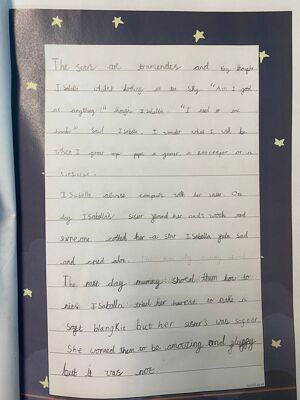 The stars are tramendes and
Isabella whilst looking at the sky. "Am I good
at anything?" thought Isabella. "I need to
" Said Isabella. I wonder what I will be
when I grow up a a zoo keeper or a

ISabella always compars with her sister. One
day ISabella's sister joined her work and
everyone called her a star ISabella felt sad
and cried alone.
The next day mummy showed them how to
ISabella tried her hardest to make a
Soft blangkit but her sister's was softer.
She wanted them to be amazing and
but it was not.